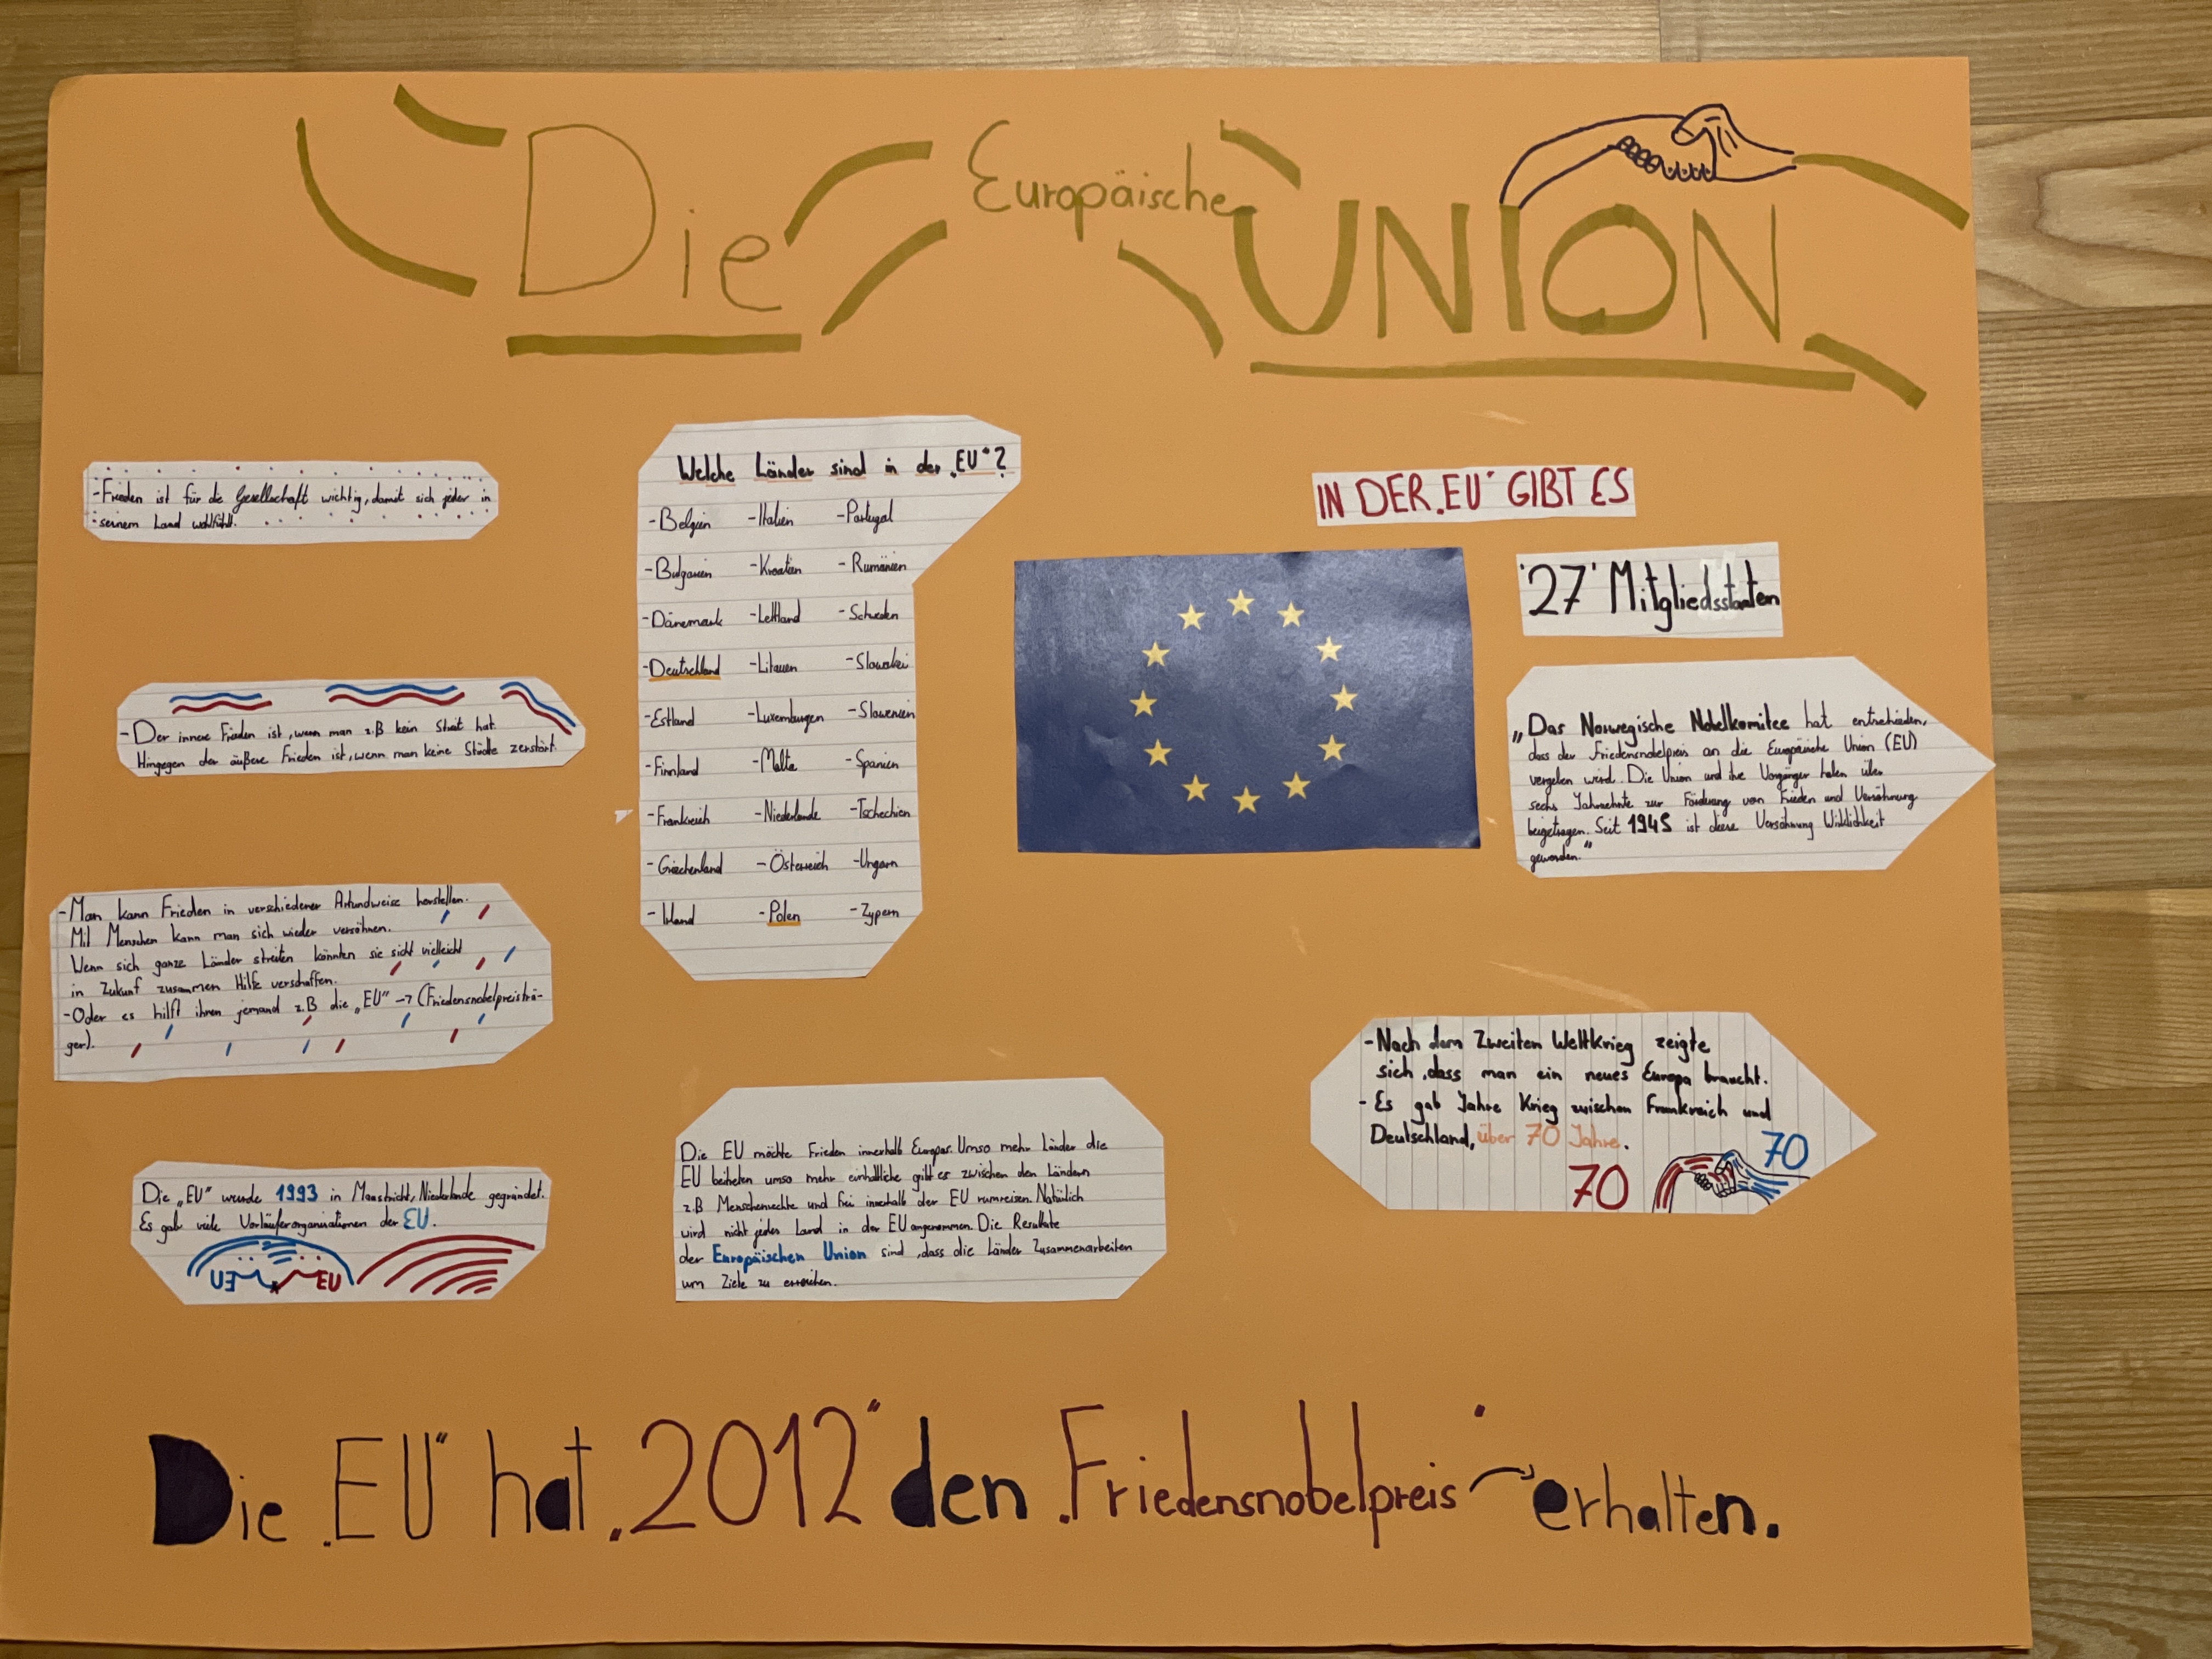 Die Europäische UNION
-Frieden ist für die Gesellschaft wichtig, damit sich jeder in
seinem Land wohlfühlt.
-Der innere Frieden ist, wenn man z.B kein Streit hat.
Hingegen der äußere Frieden ist, wenn man keine Städte zerstört.
-Man kann Frieden in verschiedener Artundweise herstellen.
Mit Menschen kann man sich wieder versöhnen.
Wenn sich ganze Länder streiten könnten sie sich vielleicht
in Zukunft zusammen Hilfe verschaffen.
-Oder es hilft ihnen jemand z.B die „EU" -> (Friedensnobelpreisträ-
ger).
Die „EU" wurde 1993 in Maastricht, Niederlande gegründet.
Es gab viele Vorläuferorganisationen der EU.
EU EU
Welche Länder sind in der „EU"?
-Belgien -Italien -Portugal
-Bulgarien -Kroatien -Rumänien
-Dänemark -Lettland -Schweden
-Deutschland -Litauen -Slowakei
-Estland -Luxemburgen -Slowenien
-Finnland -Malta -Spanien
-Frankreich -Niederlande -Tschechien
-Griechenland -Österreich -Ungarn
-Irland -Polen -Zypern
Die EU möchte Frieden innerhalb Europas. Umso mehr Länder die
EU beitreten umso mehr einheitliche gibt es zwischen den Ländern
z.B Menschenrechte und frei innerhalb der EU rumreisen. Natürlich
wird nicht jedes Land in der EU angenommen. Die Resultate
der Europäischen Union sind, dass die Länder Zusammenarbeiten
um Ziele zu erreichen.
IN DER „EU" GIBT ES
"27" Mitgliedsstaaten
„Das Norwegische Nobelkomitee hat entschieden,
dass der Friedensnobelpreis an die Europäische Union (EU)
vergeben wird. Die Union und ihre Vorgänger haben über
sechs Jahrzehnte zur Förderung von Frieden und Versöhnung
beigetragen. Seit 1945 ist diese Versöhnung Wirklichkeit
geworden."
-Nach dem Zweiten Weltkrieg zeigte
sich, dass man ein neues Europa braucht.
- Es gab Jahre Krieg zwischen Frankreich und
Deutschland, über 70 Jahre.
70 70
Die „EU" hat „2012" den „Friedensnobelpreis" erhalten.